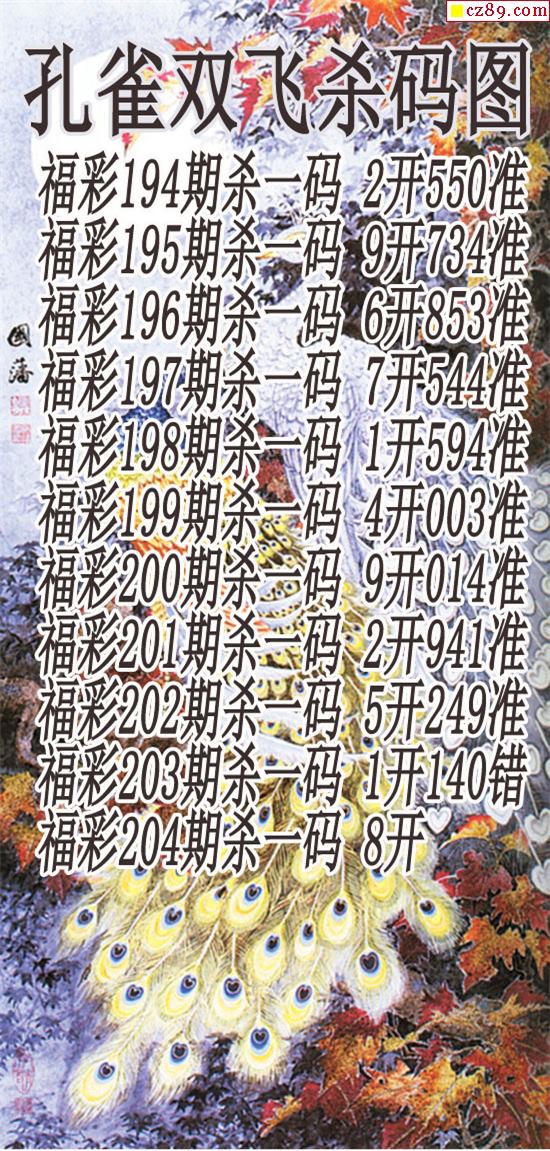 cz89.com
孔雀双飞杀码图
福彩194期杀一码 2开550准
福彩195期杀一码 9开734准
福彩196期杀一码 6开853准
福彩197期杀一码 7开544准
福彩198期杀一码 1开594准
福彩199期杀一码 4开003准
福彩200期杀一码 9开014准
福彩201期杀一码 2开941准
福彩202期杀一码 5开249准
福彩203期杀一码 1开140错
福彩204期杀一码 8开
國藩